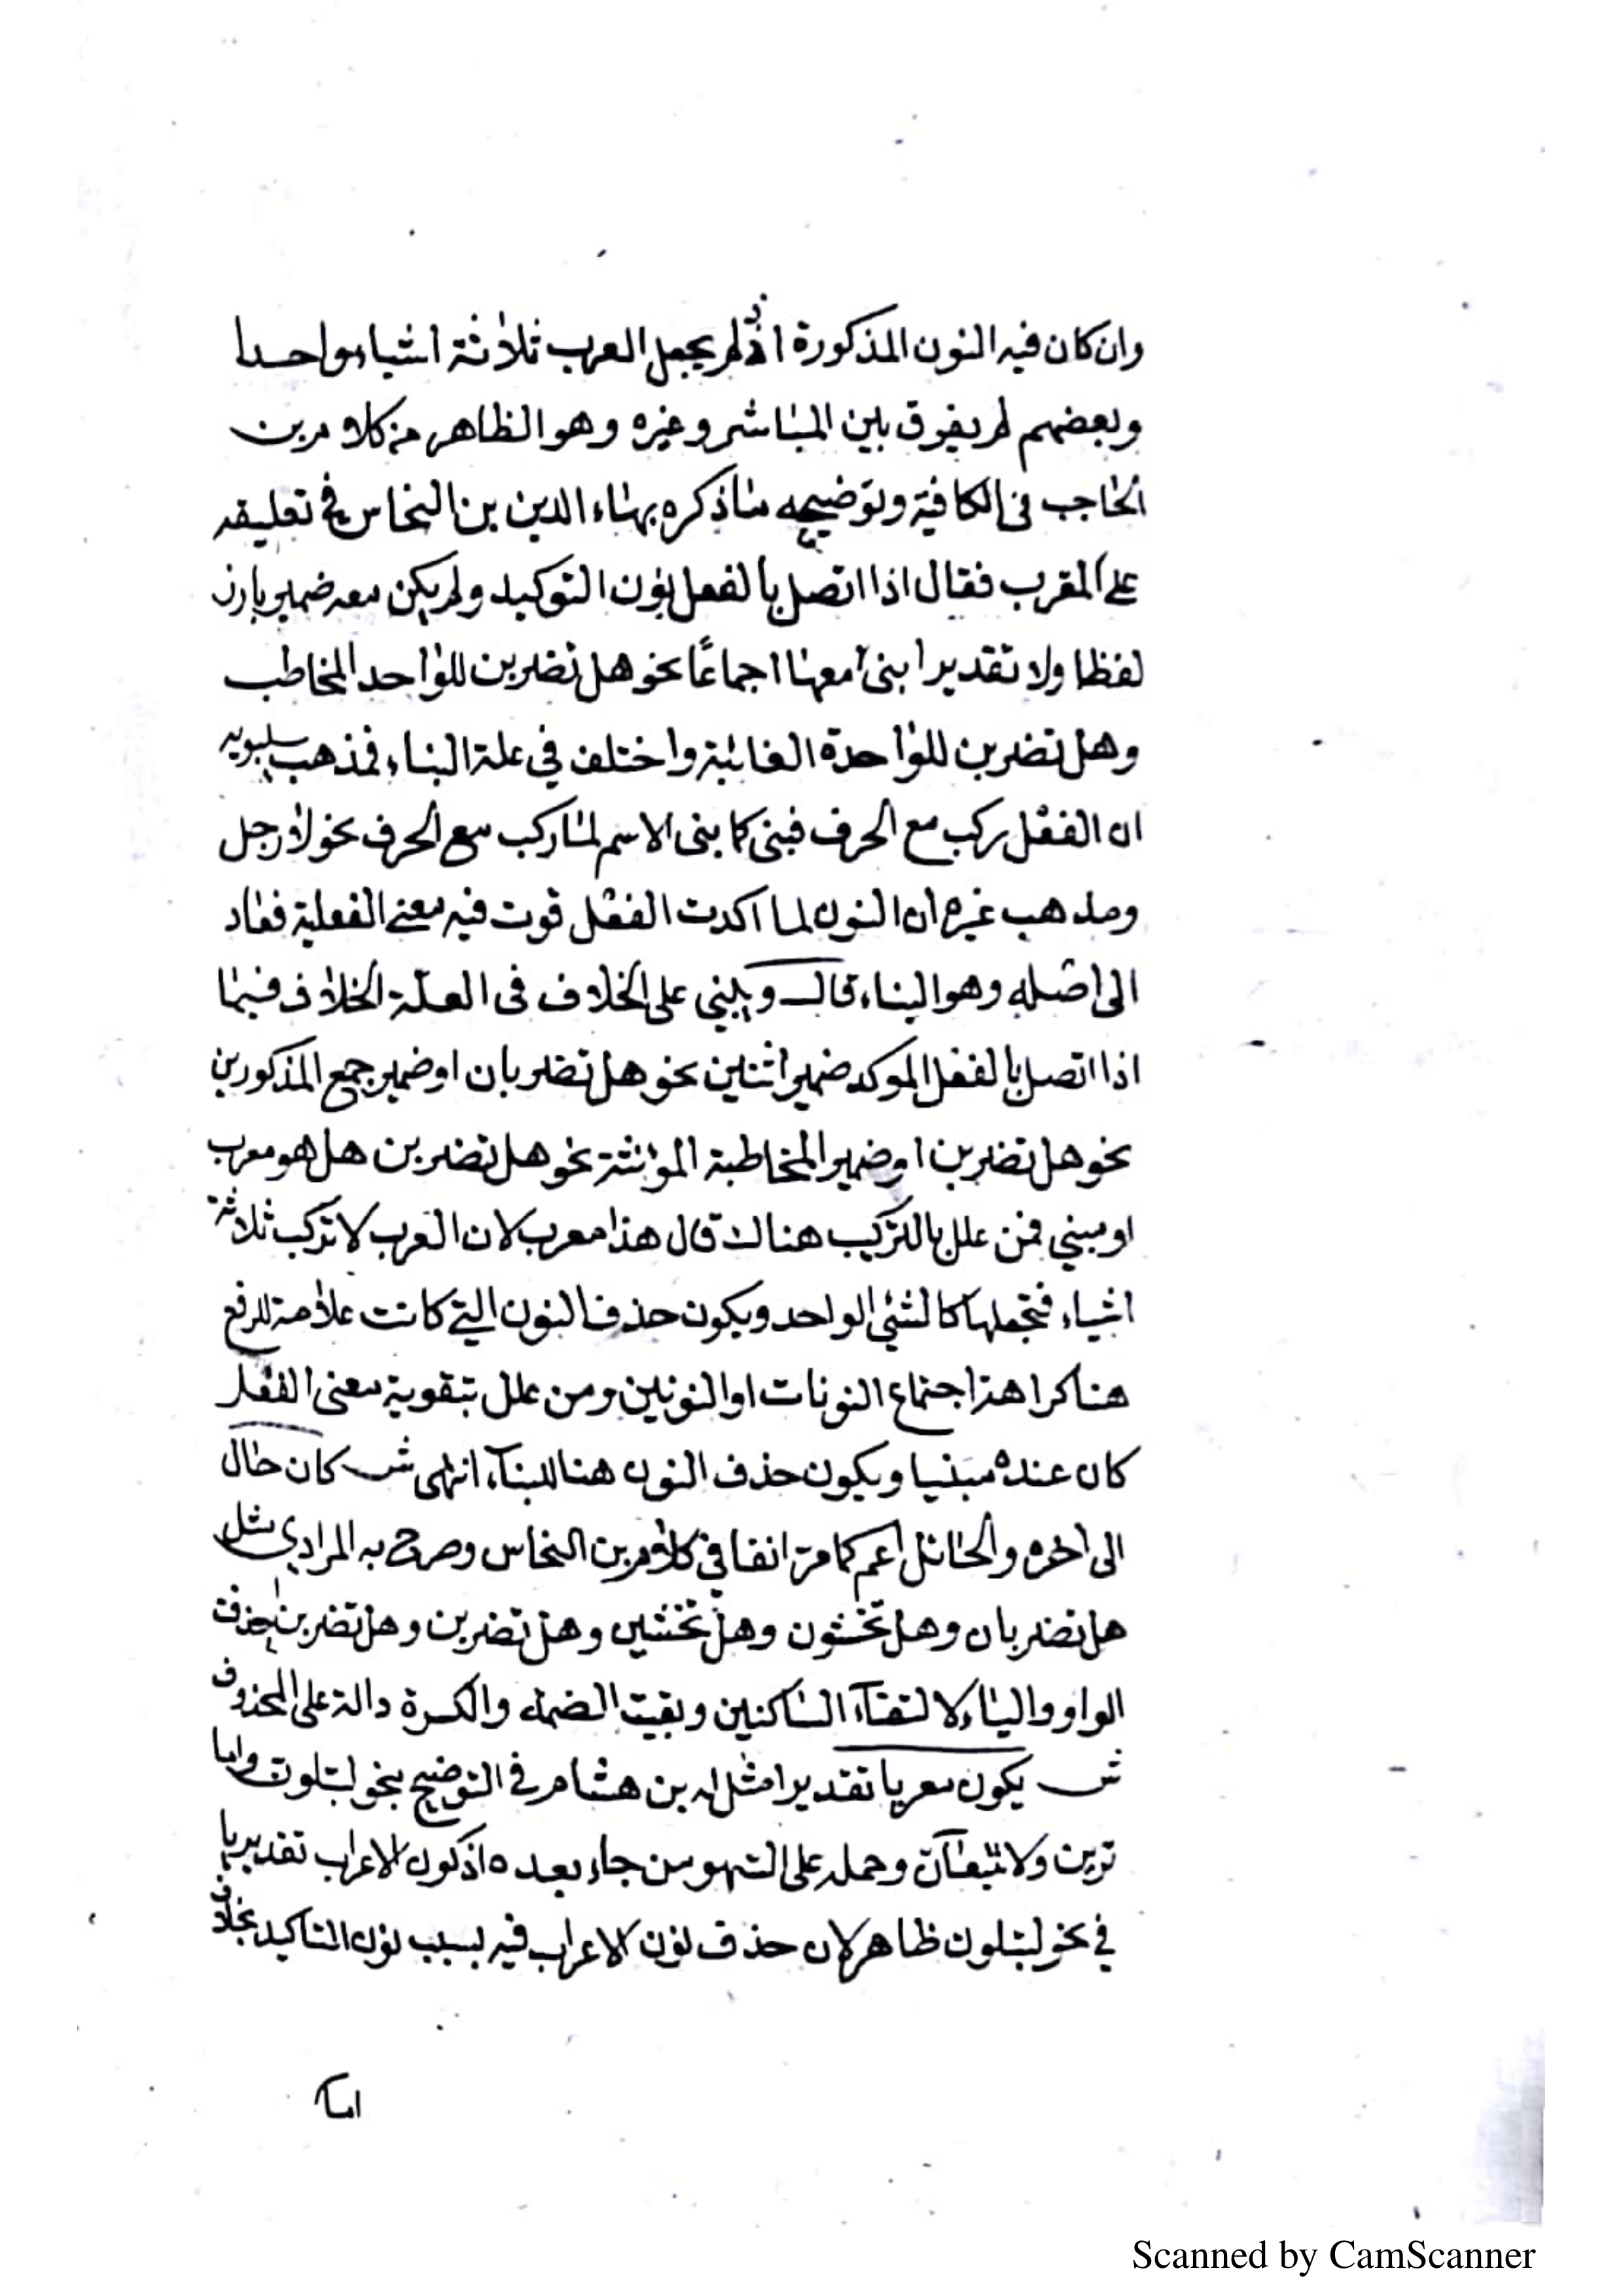 وان كان فيه النون المذكورة اذ لم يجعل العرب ثلاثة اشياء واحدا
وبعضهم لم يفرق بين المباشر وغيره وهو الظاهر من كلام بن
الحاجب في الكافية وتوضيحه ما ذكره بهاء الدين بن النحاس في تعليقه
على المقرب فقال اذا اتصل بالفعل نون التوكيد ولم يكن معه ضمير بارز
لفظا ولا تقديرا بنى معها اجماعًا نحو هل تضربن للواحد المخاطب
وهل تضربن للواحدة الغائبة واختلف في علة البناء فمذهب سيبويه
ان الفعل ركب مع الحرف فبنى كما بنى الاسم لما ركب مع الحرف نحو لا رجل
ومذهب غيره ان النون لما اكدت الفعل قوت فيه معنى الفعلية فعاد
الى اصله وهو البناء قال ويبني على الخلاف في العلة الخلاف فيما
اذا اتصل بالفعل الموكد ضمير اثنين نحو هل تضربان او ضمير جمع المذكورين
نحو هل تضربن او ضمير المخاطبة المؤنثة نحو هل تضربن هل هو معرب
او مبني فمن علل بالتركيب هناك قال هذا معرب لان العرب لا تركب ثلاثة
اشياء فتجعلها كالشئ الواحد ويكون حذف النون التي كانت علامة للرفع
هنا كراهة اجتماع النونات او النونين ومن علل بتقوية معنى الفعل
كان عنده مبنيا ويكون حذف النون هنا للبناء انتهى ش كان حال
الى اخره والحائل اعم كما مر انفا في كلام بن النحاس وصرح به المرادي مثل
هل تضربان وهل تخشون وهل تخشين وهل تضربن وهل تضربن بحذف
الواو والياء لالتقاء الساكنين وبقيت الضمة والكسرة دالة على المحذوف
ش يكون معربا تقديرا مثل له بن هشام في التوضيح بنحو لتبلون واما
ترين ولا تتبعان وحمله على السهو من جاء بعده اذ كون الاعراب تقديريا
في نحو لتبلون ظاهر لان حذف نون الاعراب فيه لسبب نون التاكيد بخلاف
اما
Scanned by CamScanner